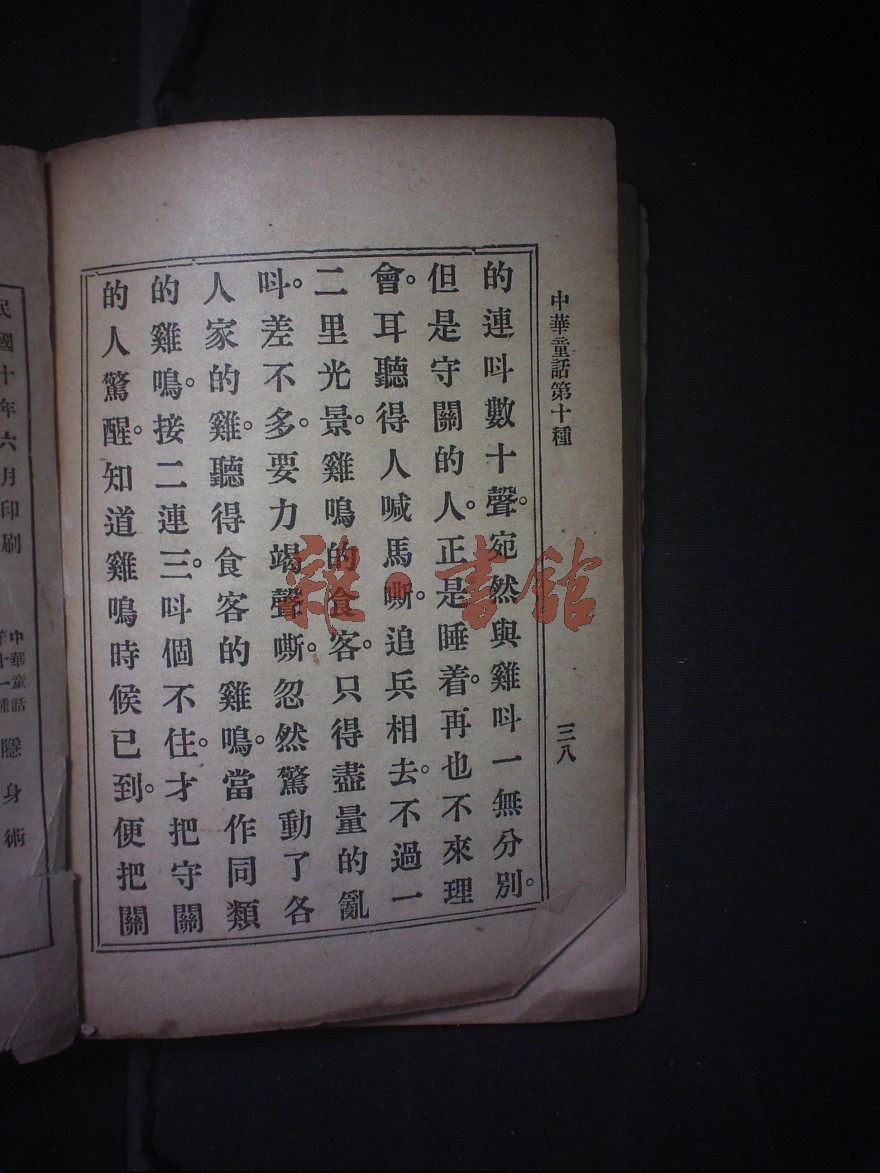 中華童話第十種
三八
的連呌數十聲。宛然與雞呌一無分別。
但是守關的人。正是睡着。再也不來理
會。耳聽得人喊馬嘶。追兵相去。不過一
二里光景。雞鳴的食客。只得盡量的亂
呌。差不多。要力竭聲嘶。忽然驚動了各
人家的雞。聽得食客的雞鳴。當作同類
的雞鳴。接二連三。呌個不住。才把守關
的人驚醒。知道雞鳴時候已到。便把關
民國十年六月印刷
中華童話
第十一種
隱身術
雜·書館